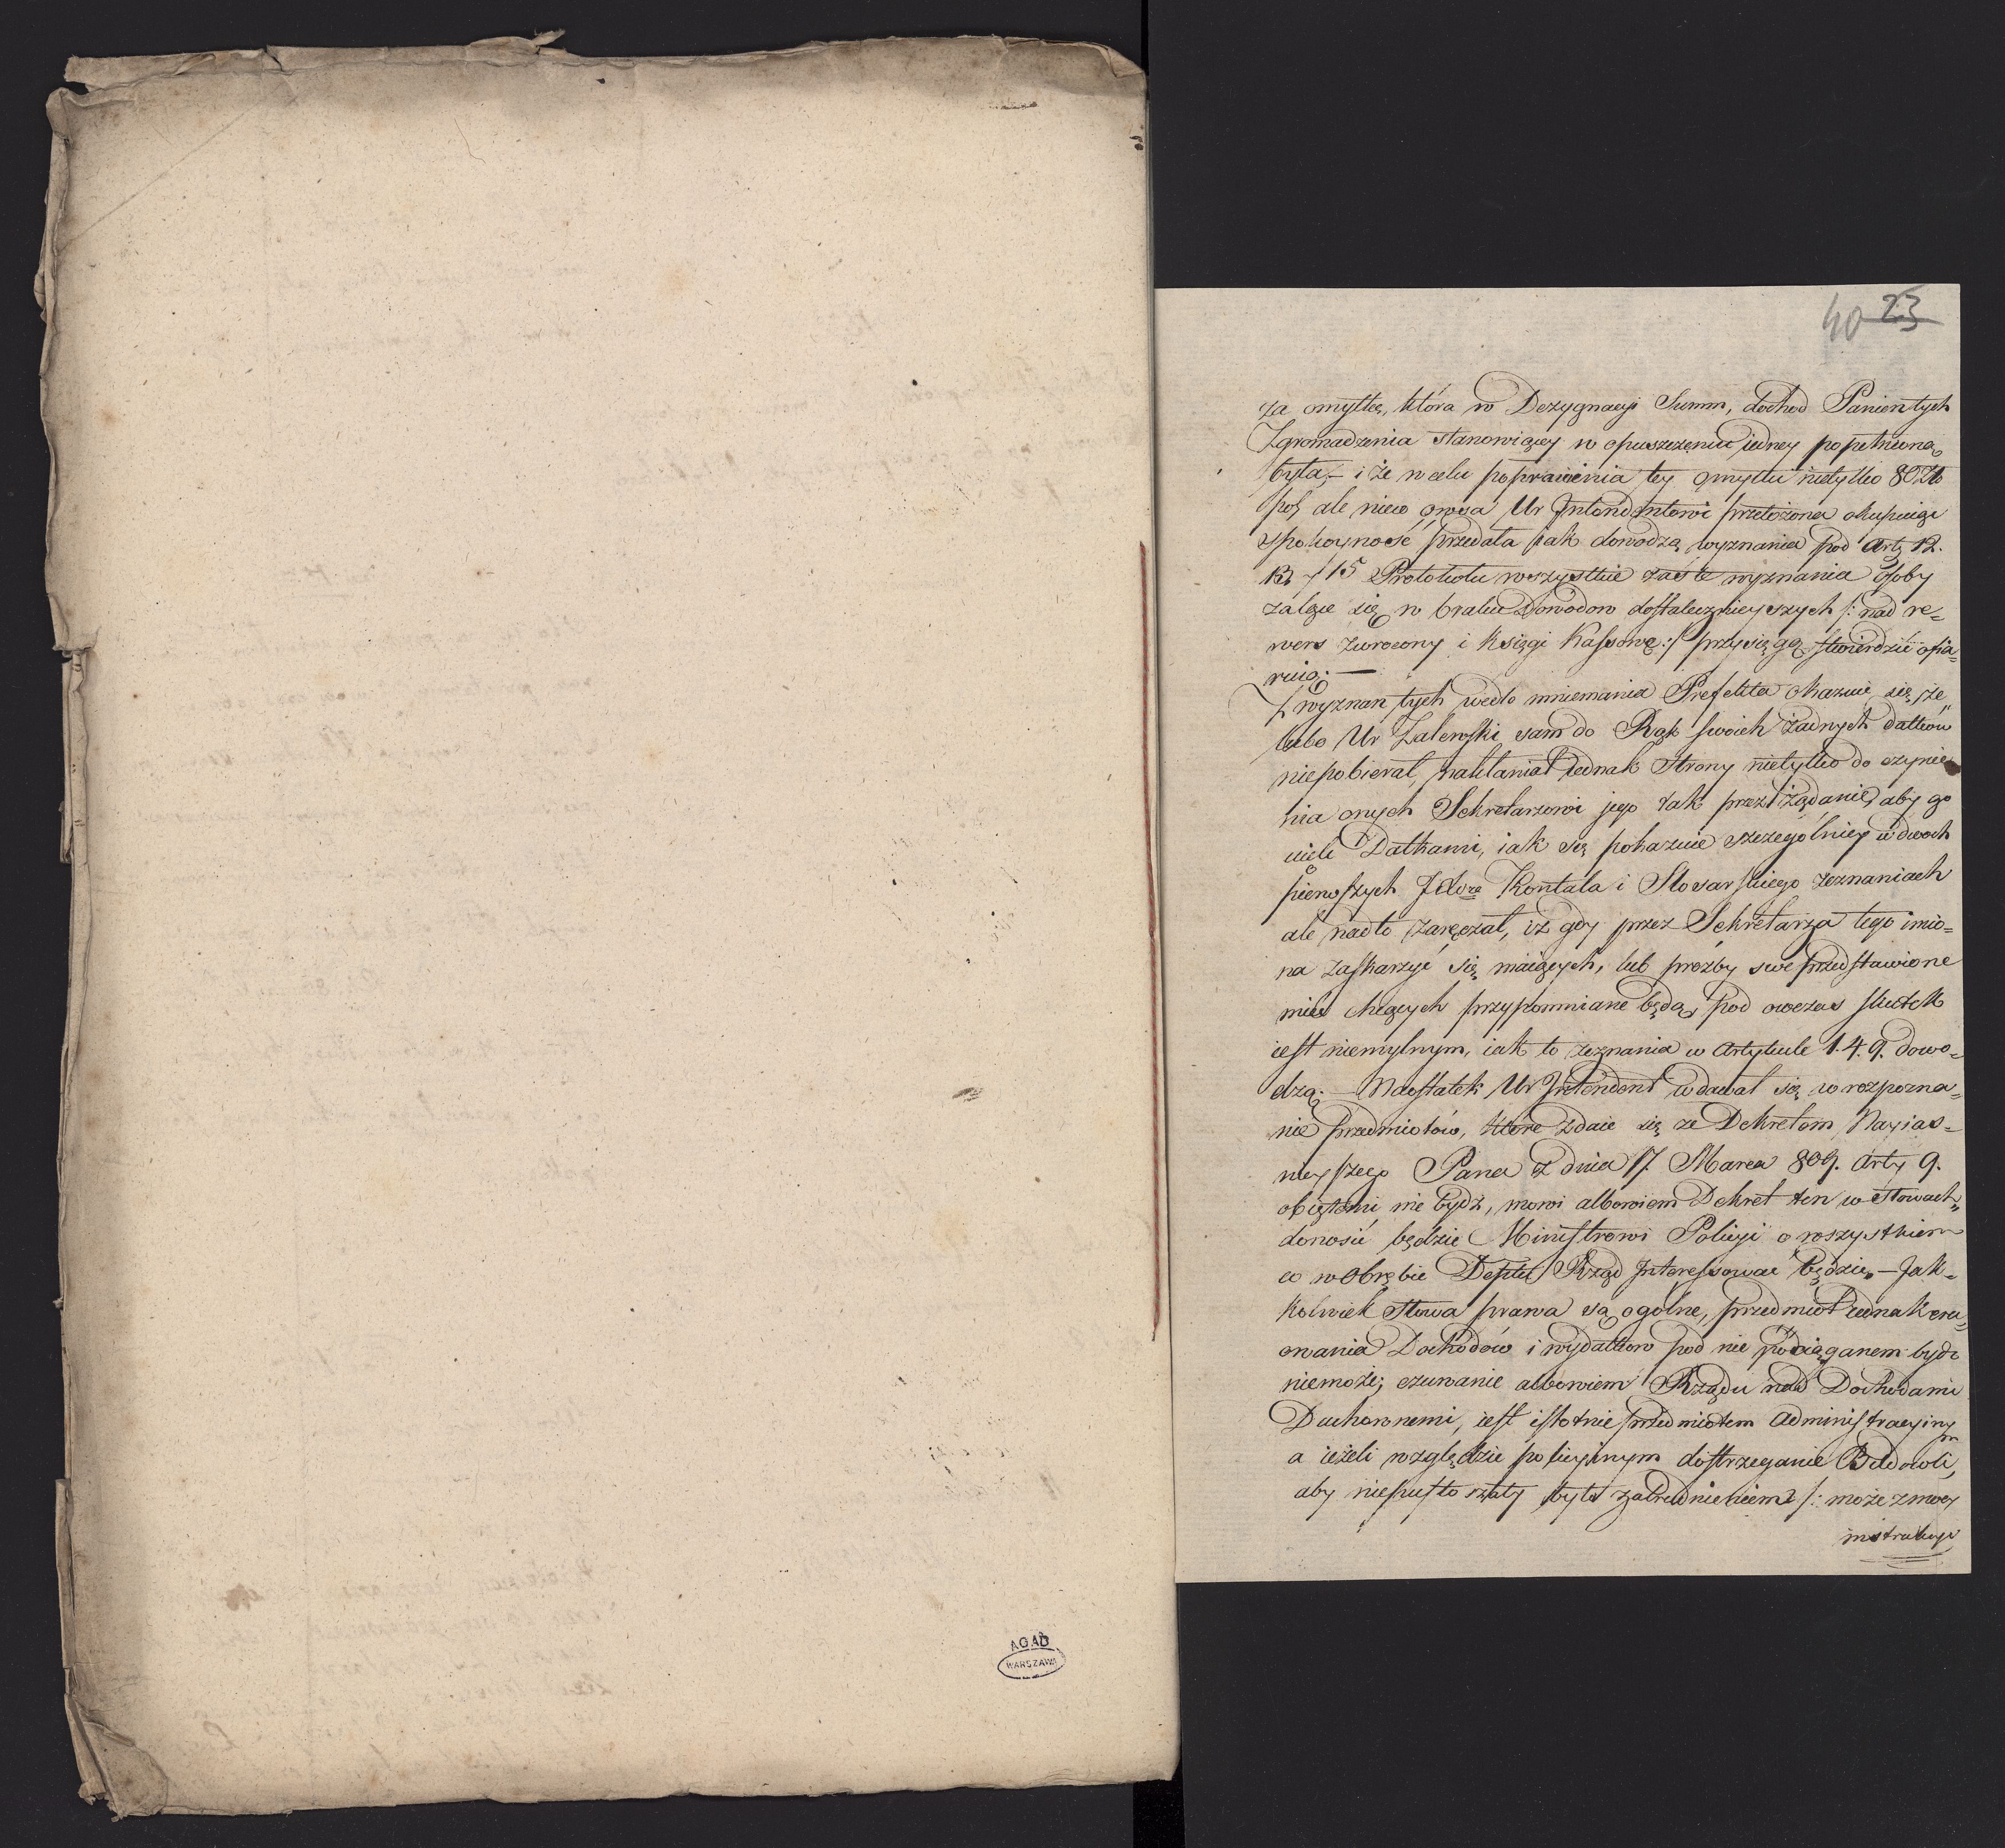 40 23
za omyłkę, która w Dezygnacyi Summ, dochod Panien tych
Zgromadzenia stanowiącey w opuszczeniu iedney popełnioną
była,– i że w celu poprawienia tey omyłki nietylko 80 Zł
pol ale niew owsa Ur Intendentowi przełożona okupuiąc
spokoyność przedała iak dowodzą wyznania pod Art 12.
13 y 15 Protokołu wszystkie zaś te wyznania osoby
żalące się w braku Dowodow dostatecznieyszych /: nad re=
wers zwrocony i Księgi Kassowe :/ przysięgą stwierdzić ofia=
ruią. —
Z wyznan tych wedle mniemania Prefekta okazuie się, że
lubo Ur Zalewski sam do Rąk swoich żadnych datkow
niepobierał, nakłaniał iednak Strony nietylko do czynie
nia onych Sekretarzowi jego tak przez żądanie, aby go
uieli Datkami, iak się pokazuie szczegolniey w dwoch
pierwszych Kontala i Slosarskiego zeznaniach
ale nadto zaręczał, iż gdy przez Sekretarza tego imio=
na zaskarzyć się maiących, lub prozby swe przedstawione
mieć chcących przypomniane będą, pod owczas skutek
iest niemylnym, iak to zeznania w Artykule 1. 4. 9. dowo=
dzą. — Naostatek Ur Intendent wdawał się w rozpozna=
nie przedmiotów, ktore zdaie się ze Dekretem Nayias=
nieyszego Pana z dnia 17. Marca 809. Arty 9.
obiętemi nie bydź, mowi albowiem Dekret ten w słowach„
donosić będzie Ministrowi Policyi o wszystkiem
co w Obrębie Deptu Rząd Interessować będzie„ — Jak=
kolwiek słowa prawa są ogolne, przedmiot iednak czu=
wania Dochodów i wydatkow pod nie podciąganem bydź
niemoże; czuwanie albowiem Rządu nad Dochodami
Duchownemi, iest istotnie przedmiotem Administracyiny
m
a ieżeli względzie policyinym dostrzeganie Budowli,
aby niepustoszały było zatrudnieniem /: może z mocy
instrukcyi
AGAD
WARSZAWA